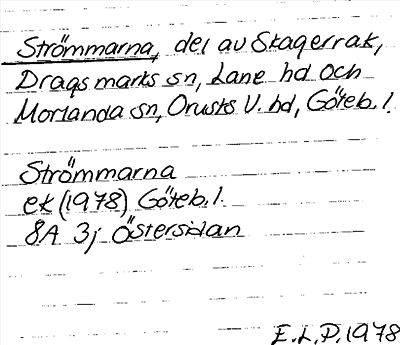 Strömmarna, del av Skagerrak,
Dragsmarks sn, Lane hd och
Morlanda sn, Orusts V. hd, Göteb. l.
Strömmarna
ek (1978) Göteb. l.
8A 3j Östersidan
E.L.P. 1978